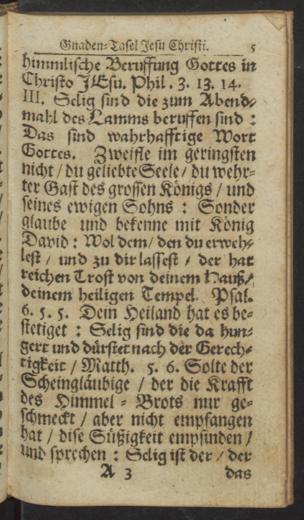 Gnaden-Tafel Jesu Christi. 5
himmlische Beruffung Gottes in
Christo JEsu. Phil. 3. 13. 14.
III. Selig sind die zum Abend-
mahl des Lamms beruffen sind :
Das sind wahrhafftige Wort
Gottes. Zweifle im geringsten
nicht / du geliebte Seele / du wehr-
ter Gast des grossen Königs / und
seines ewigen Sohns : Sonder
glaube und bekenne mit König
David : Wol dem / den du erweh-
lest / und zu dir lassest / der hat
reichen Trost von deinem Hauß /
deinem heiligen Tempel. Psal.
6. 5. 5. Dein Heiland hat es be-
stetiget : Selig sind die da hun-
gert und dürstet nach der Gerech-
tigkeit / Matth. 5. 6. Solte der
Scheingläubige / der die Krafft
des Himmel-Brots nur ge-
schmeckt / aber nicht empfangen
hat / dise Süßigkeit empfinden /
und sprechen : Selig ist der / der
A 3 das